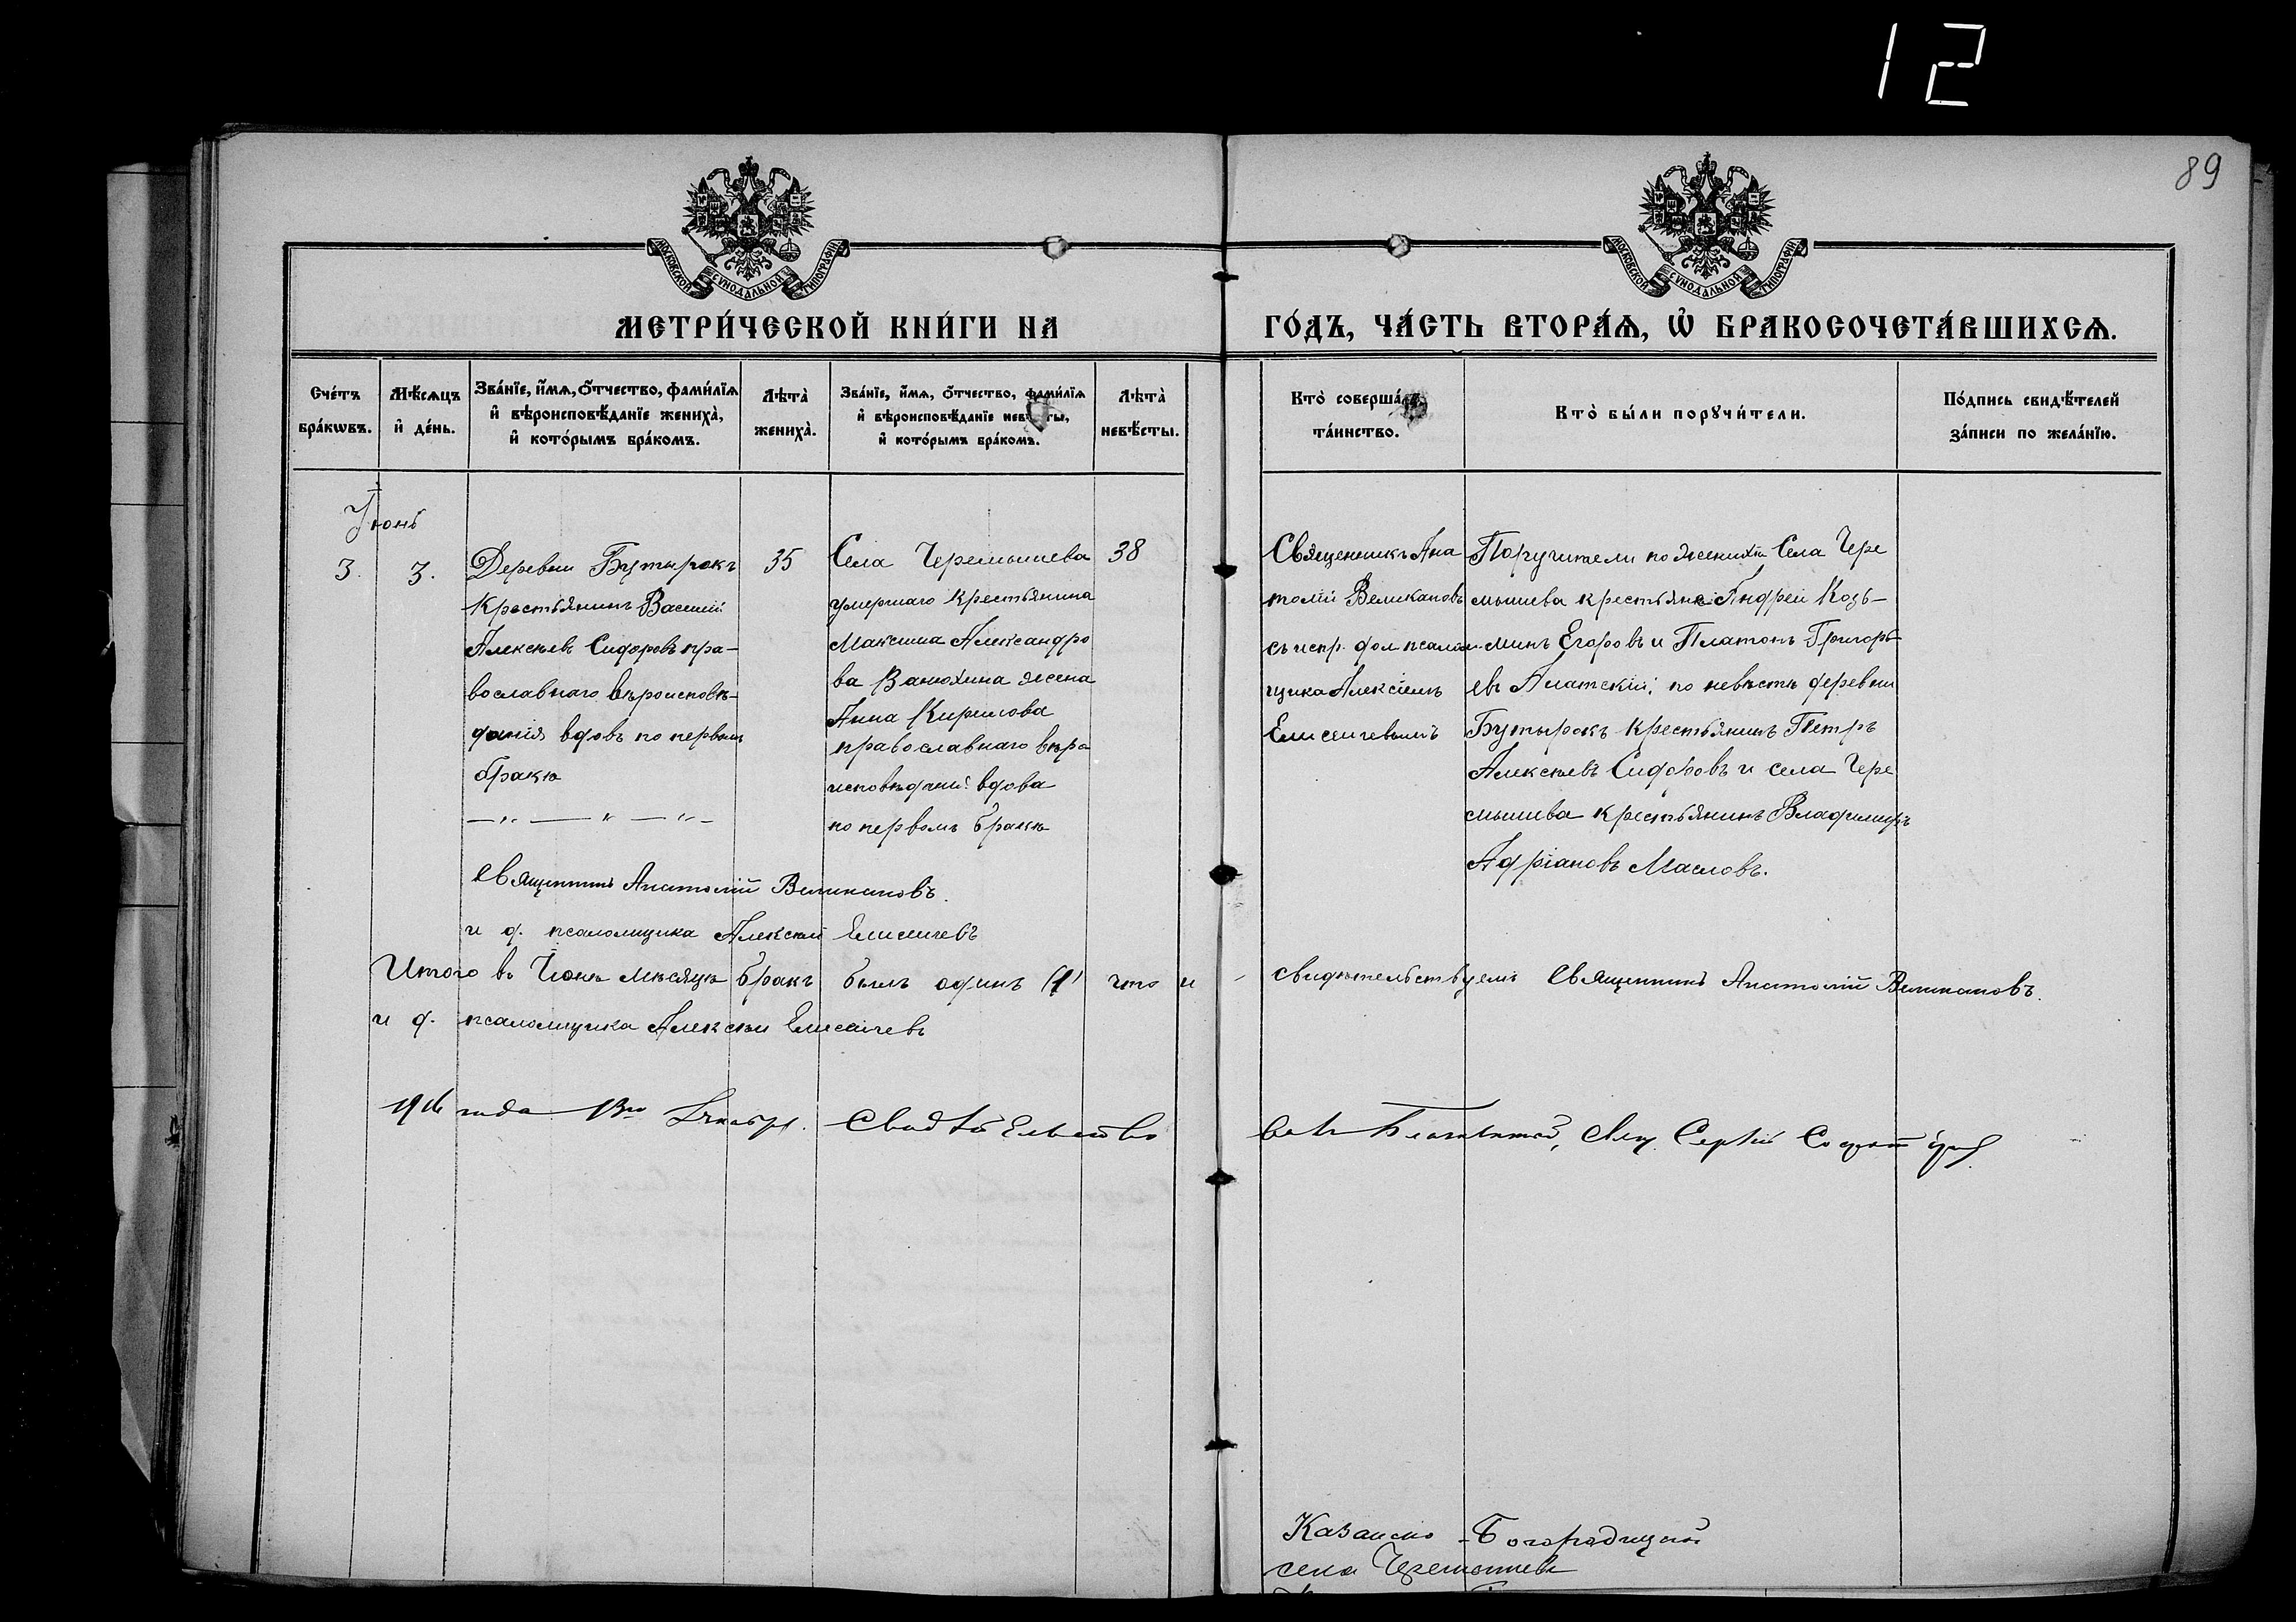 12
89
МОСКОВСКОЙ СѴНОДАЛЬНОЙ ТИПОГРАФІИ
МОСКОВСКОЙ СѴНОДАЛЬНОЙ ТИПОГРАФІИ
МЕТРИ́ЧЕСКОЙ КНИ́ГИ НА ГО́ДЪ, ЧА́СТЬ ВТОРА́Ѧ, Ѽ БРАКОСОЧЕТА́ВШИХСѦ.
Сче́тъ
бра́кѡвъ.
Мѣ́сѧцъ
и҆ де́нь.
Зва́нїе, и҆́мѧ, ѻ҆́тчество, фами́лїѧ
и҆ вѣроисповѣ́данїе жениха̀,
и҆ кото́рымъ бра́комъ.
Лѣта̀
жениха̀.
Зва́нїе, и҆́мѧ, ѻ҆́тчество, фами́лїѧ
и҆ вѣроисповѣ́данїе невѣ́сты,
и҆ кото́рымъ бра́комъ.
Лѣта̀
невѣ́сты.
Кто̀ соверша́лъ
та́инство.
Кто̀ бы́ли порꙋчи́тели.
По́дпись свидѣ́телей
за́писи по жела́нїю.
Іюнь
3.
3.
Деревни Бутырокъ
Крестьянинъ Василій
Алексѣевъ Сидоровъ пра-
вославнаго вѣроисповѣ-
данія вдовъ по первомъ
бракѣ
35
Села Черемышева
умершаго крестьянина
Максима Александро
ва Ванюхина жена
Анна Кирилова
православнаго вѣро
исповѣданія вдова
по первомъ бракѣ
38
Священникъ Ана
толій Великановъ
съ испр. дол. псалом-
щика Алексіемъ
Елисеичевымъ
Поручители по женихѣ Села Чере
мышева крестьяне Андрей Козь-
минъ Егоровъ и Платонъ Григорь
евъ Алатскій; по невѣстѣ деревни
Бутырокъ крестьянинъ Петръ
Алексѣевъ Сидоровъ и села Чере
мышева крестьянинъ Владиміръ
Адріановъ Масловъ.
Священникъ Анатолій Великановъ.
и д. псаломщика Алексѣй Елисеичевъ
Итого въ Іюнѣ мѣсяцѣ бракъ былъ одинъ (1) что и свидѣтельствуемъ Священникъ Анатолій Великановъ.
и д. псаломщика Алексѣй Елисеичевъ
1916 года Свидѣтельство
Сергѣй
Казанско-Богородицкой
села Черемышева